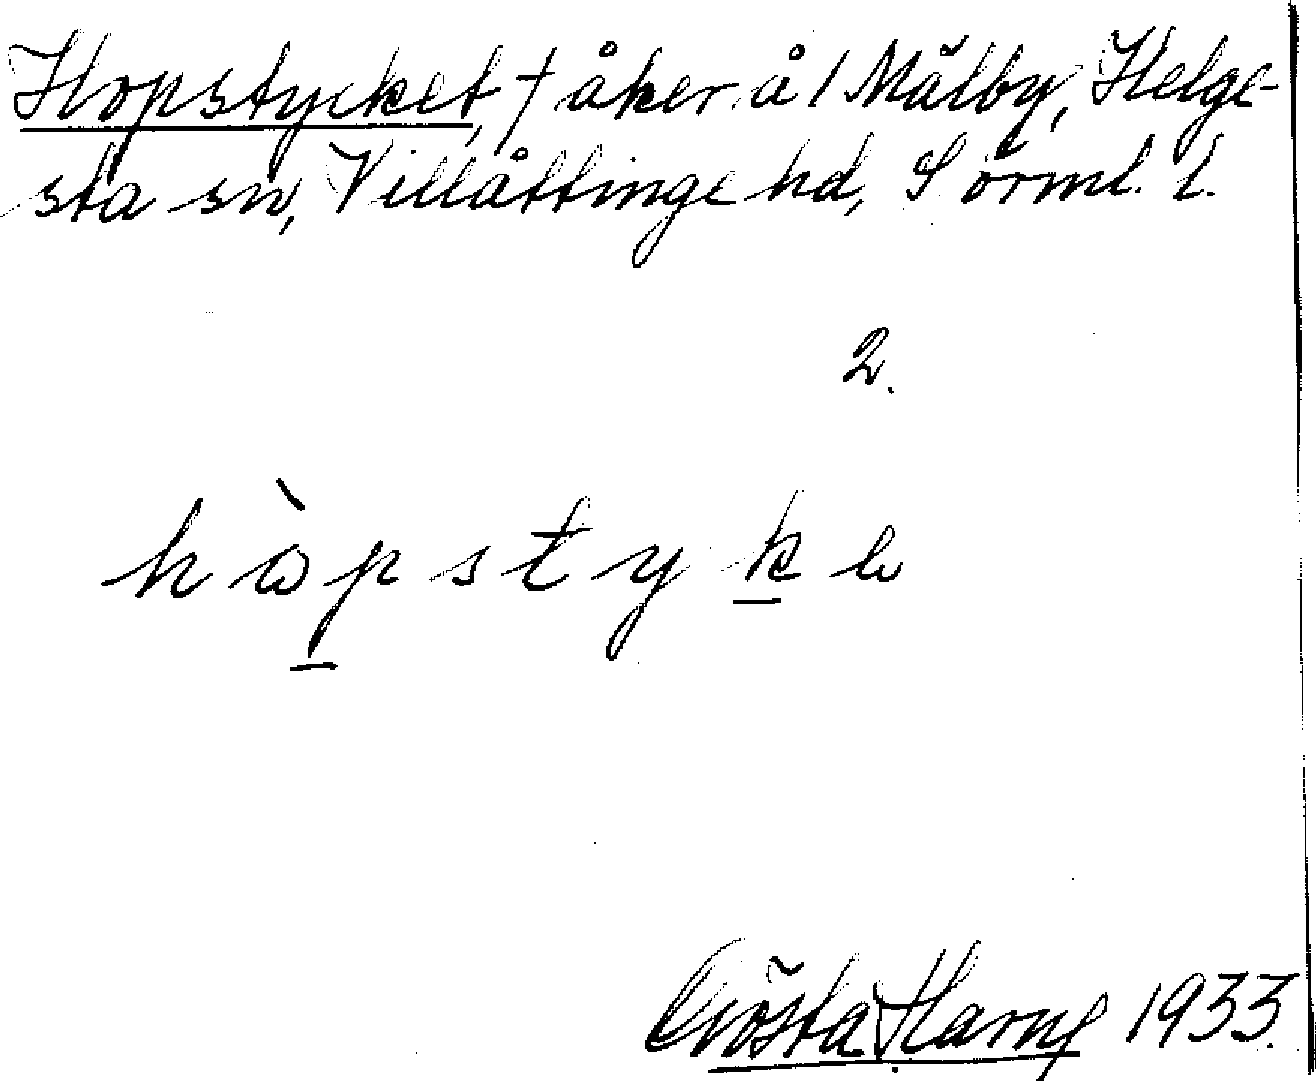 Hopstycket, † åker å 1 Målby, Helge-
sta sn, Villåttinge hd, Sörml. l.
2.
hòpstyke
Gösta Harny 1933.